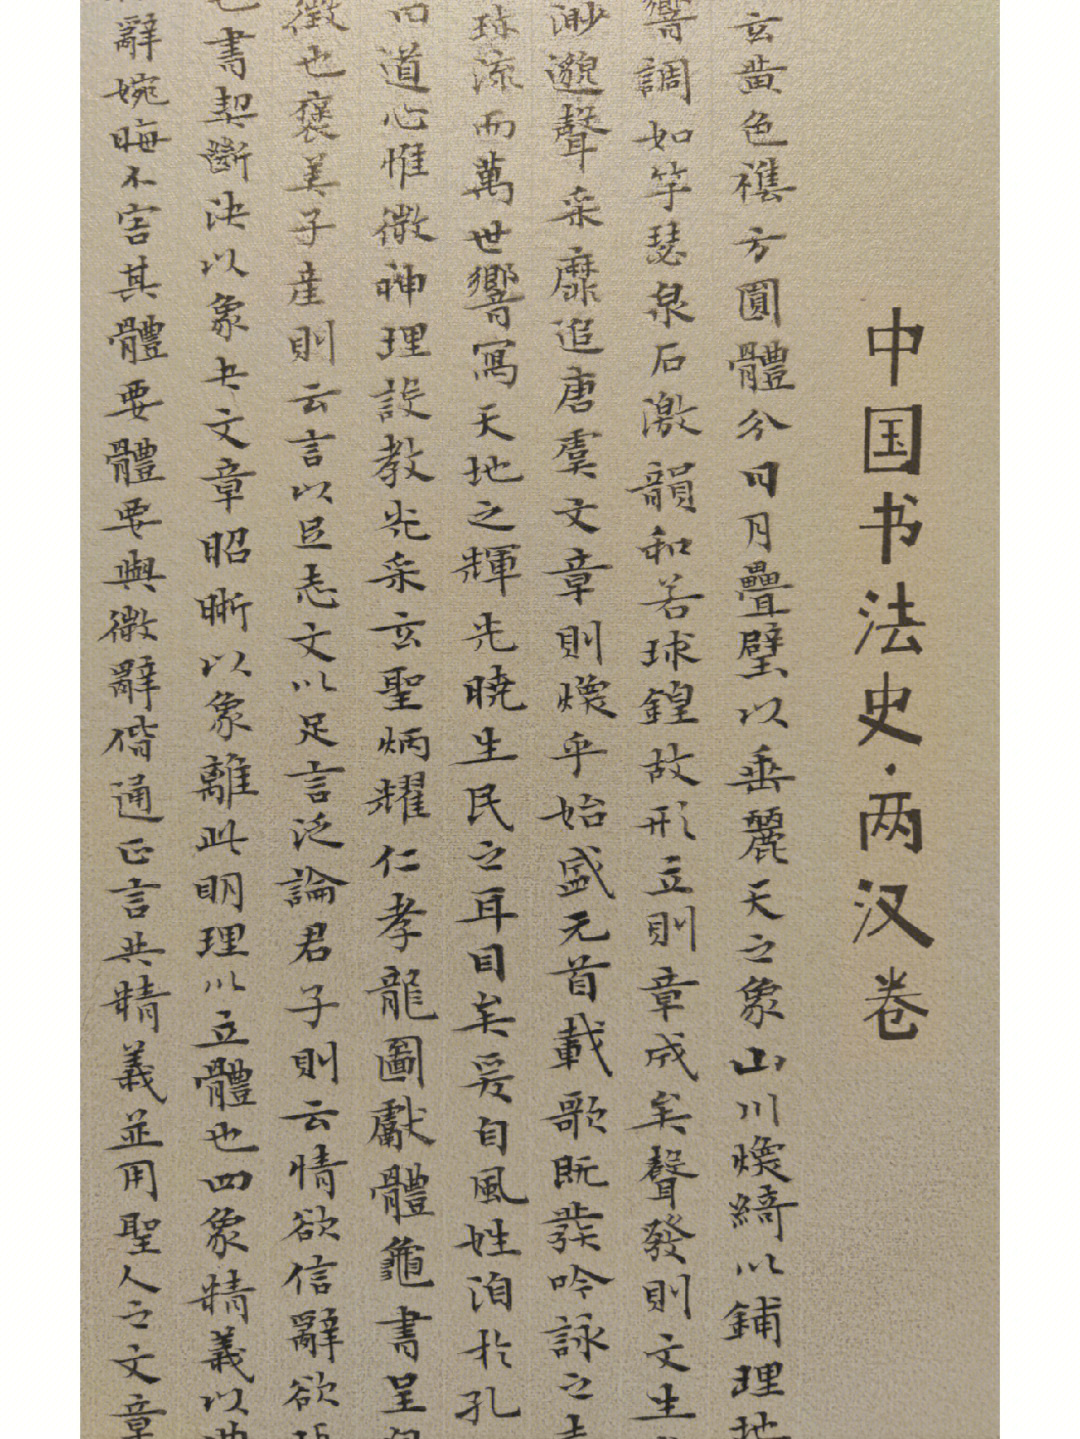 中国书法史·两汉卷
玄黄色襍方圓體分日月疊璧以垂麗天之象山川煥綺以鋪理地
響調如竽瑟泉石激韻和若球鍠故形立則章成矣聲發則文生
渺邈聲采靡追唐虞文章則煥乎始盛元首載歌既發吟詠之
流而萬世響寫天地之輝光曉生民之耳目矣爰自風姓洎於孔
曰道心惟微神理設教光采玄聖炳耀仁孝龍圖獻體龜書呈
徵也褒美子產則云言以足志文以足言泛論君子則云情欲信辭欲
書契斷決以象夬文章昭晰以象離此明理以立體也四象精義以
辭婉晦不害其體要體要與微辭偕通正言共精義並用聖人之文章